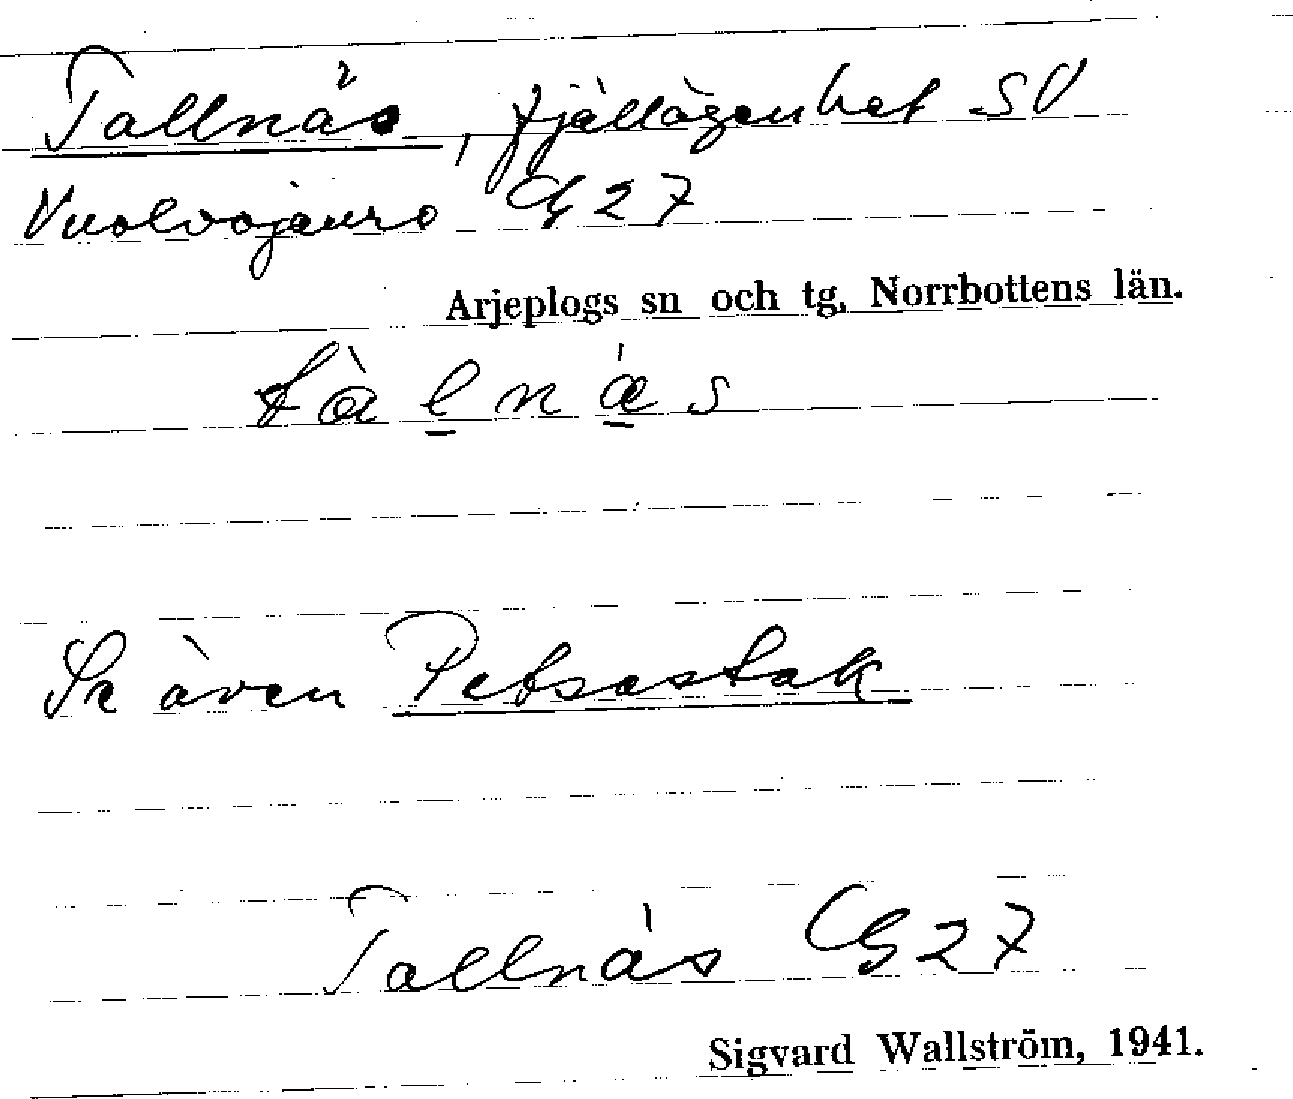 Tallnäs, fjällägenhet SV
Vuolvojaure G27
Arjeplogs sn och tg, Norrbottens län.
tàlnǽs
Se även Petsastak
Tallnäs G27
Sigvard Wallström, 1941.